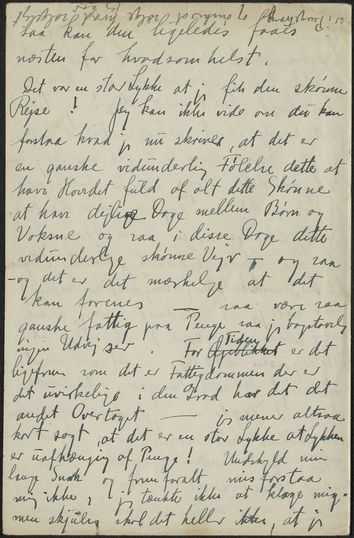 saa kan den ligeledes faaes
næsten for hvadsomhelst.
Det var en stor Lykke at jeg fik den skønne
Rejse! Jeg kan ikke vide om du kan
forstaa hvad jeg nu skriver, at det er
en ganske vidunderlig Følelse dette at
have Hovdet fuld af alt dette Skønne
at have dejlige Dage mellem Børn og
Voksne og saa i disse Dage dette
vidunderlige skønne Vejr – og saa
– og det er det mærkelige at det
kan forenes – saa være saa
ganske fattig paa Penge saa jeg bogstavelig
ingen Udvej ser. For Tiden er det
ligesom som det er Fattigdommen der er
det uvirkelige i den Grad har det det
andet Overtaget – jeg mener altsaa
kort sagt, at det er en stor Lykke at Lykken
er uafhængig af Penge! Undskyld min
lange Snak og fremforalt, misforstaa
mig ikke, jeg tænkte ikke at klage mig.
men skjules skal det heller ikke, at jeg